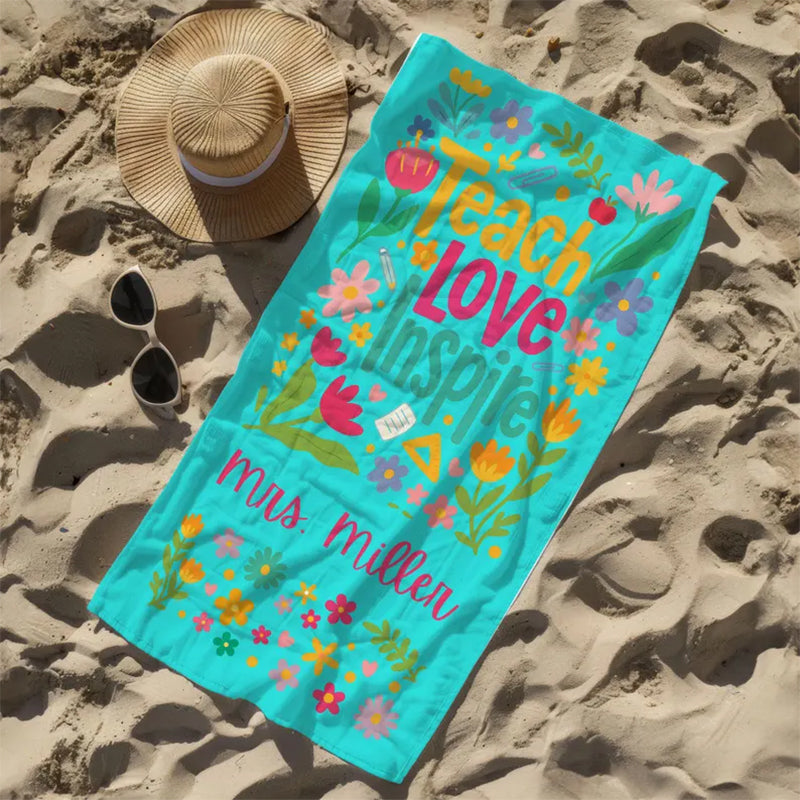 Teach
Love
Inspire
Mrs. Miller